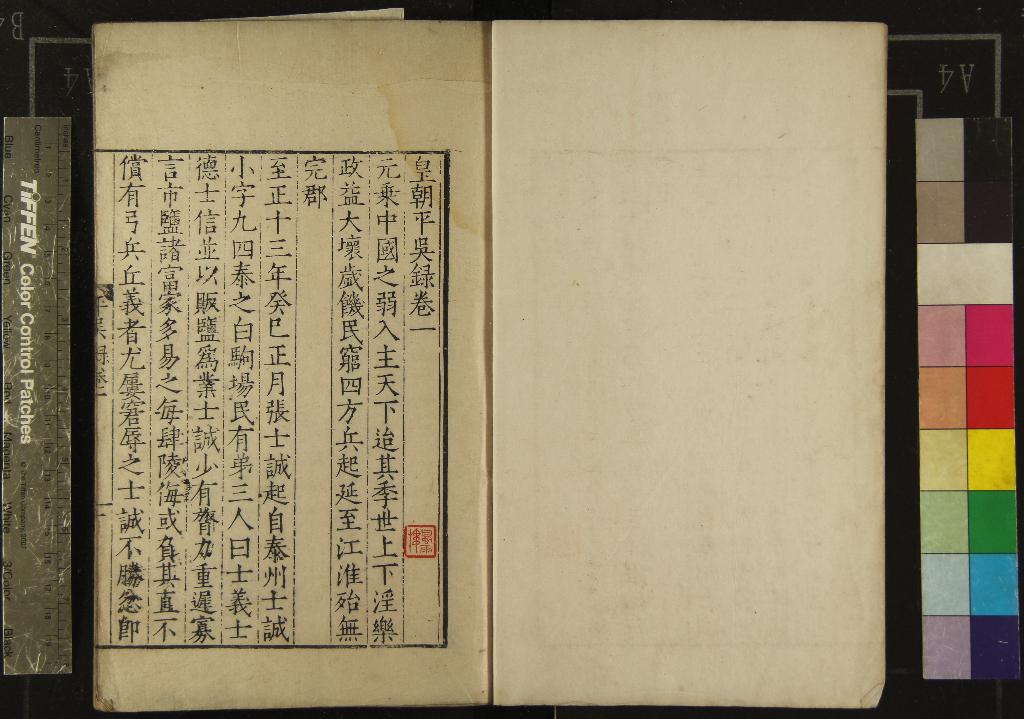 皇朝平吳録卷一
元乘中國之弱入主天下迨其季世上下淫樂
政益大壞歲饑民窮四方兵起延至江淮殆無
完郡
至正十三年癸巳正月張士誠起自泰州士誠
小字九四泰之白駒場民有弟三人曰士義士
德士信並以販鹽為業士誠少有膂力重遲寡
言市鹽諸富家多易之每肆陵侮或負其直不
償有弓兵丘義者尤屢窘辱之士誠不勝忿即
平吳録卷一
一
B4
A4
A4
Centimetres
Inches
TIFFEN Color Control Patches
Blue
Cyan
Green
Yellow
Red
Magenta
White
3/Color
Black